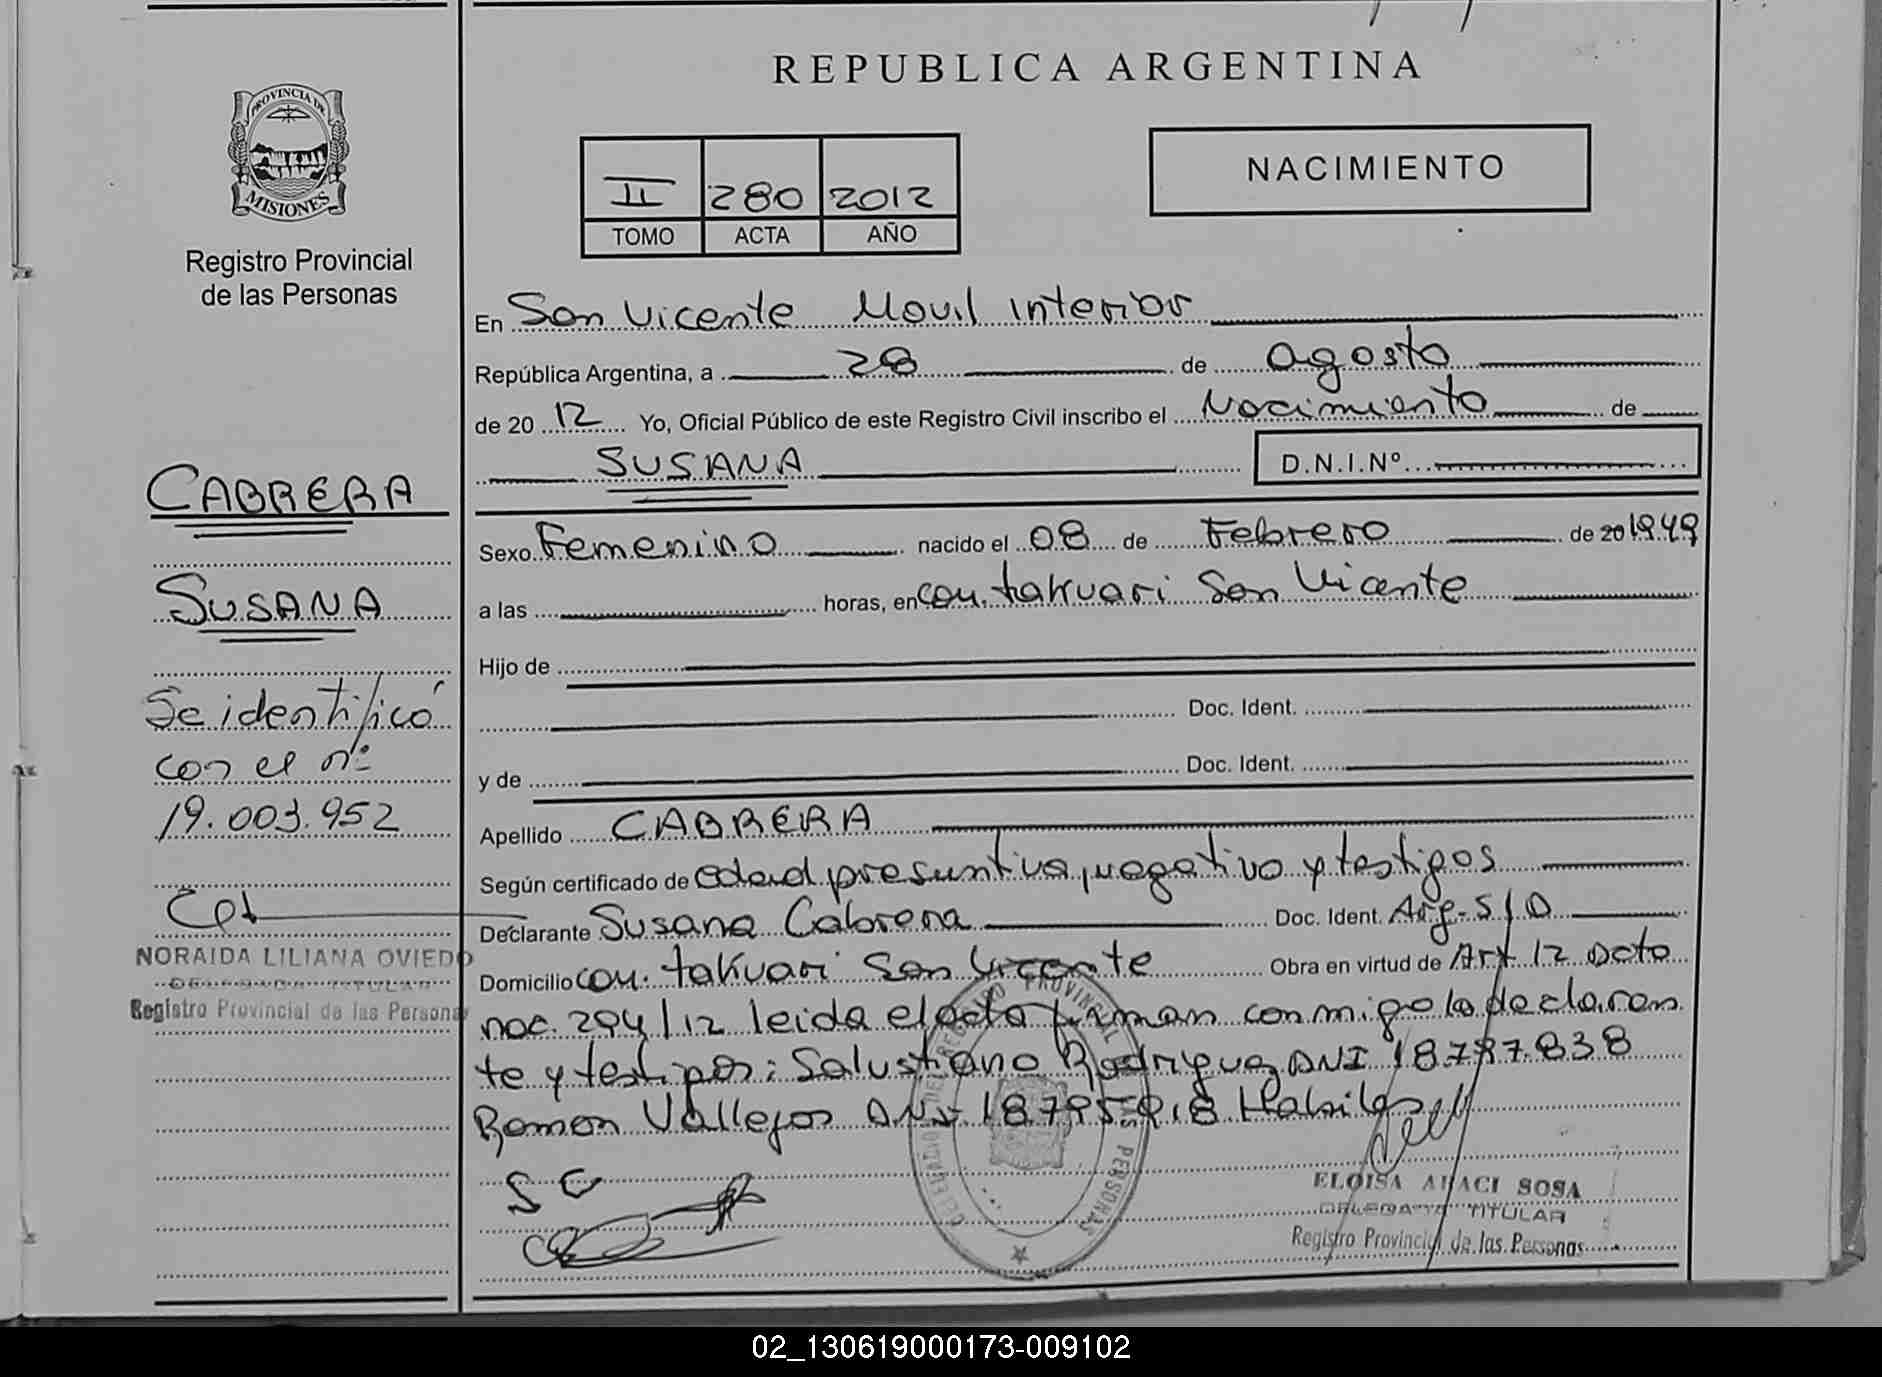 REPUBLICA ARGENTINA
PROVINCIA DE
MISIONES
Registro Provincial
de las Personas
NACIMIENTO
II 280 2012
TOMO ACTA AÑO
En San Vicente Movil Interior
República Argentina, a 28 de agosto
de 20 12 Yo, Oficial Público de este Registro Civil inscribo el Nacimiento de
SUSANA D.N.I.Nº
CABRERA
SUSANA
Se identificó
con el nº
19.003.952
NORAIDA LILIANA OVIEDO
DELEGADA TITULAR
Registro Provincial de las Personas
Sexo Femenino nacido el 08 de Febrero de 20 1949
a las horas, en Col. takuari San Vicente
Hijo de
Doc. Ident.
y de Doc. Ident.
Apellido CABRERA
Según certificado de edad presuntiva, negativo y testigos
Declarante Susana Cabrera Doc. Ident. Arg. S/D
Domicilio Col. takuari San Vicente Obra en virtud de Art 12 Dcto
nac. 294/12 leida el acta firman conmigo la declaran
te y testigos: Salustiano Rodriguez DNI 18.787.838
Ramon Vallejos DNI 18795918 Habiles
S C
ELOISA ARACI SOSA
DELEGADA TITULAR
Registro Provincial de las Personas
02_130619000173-009102